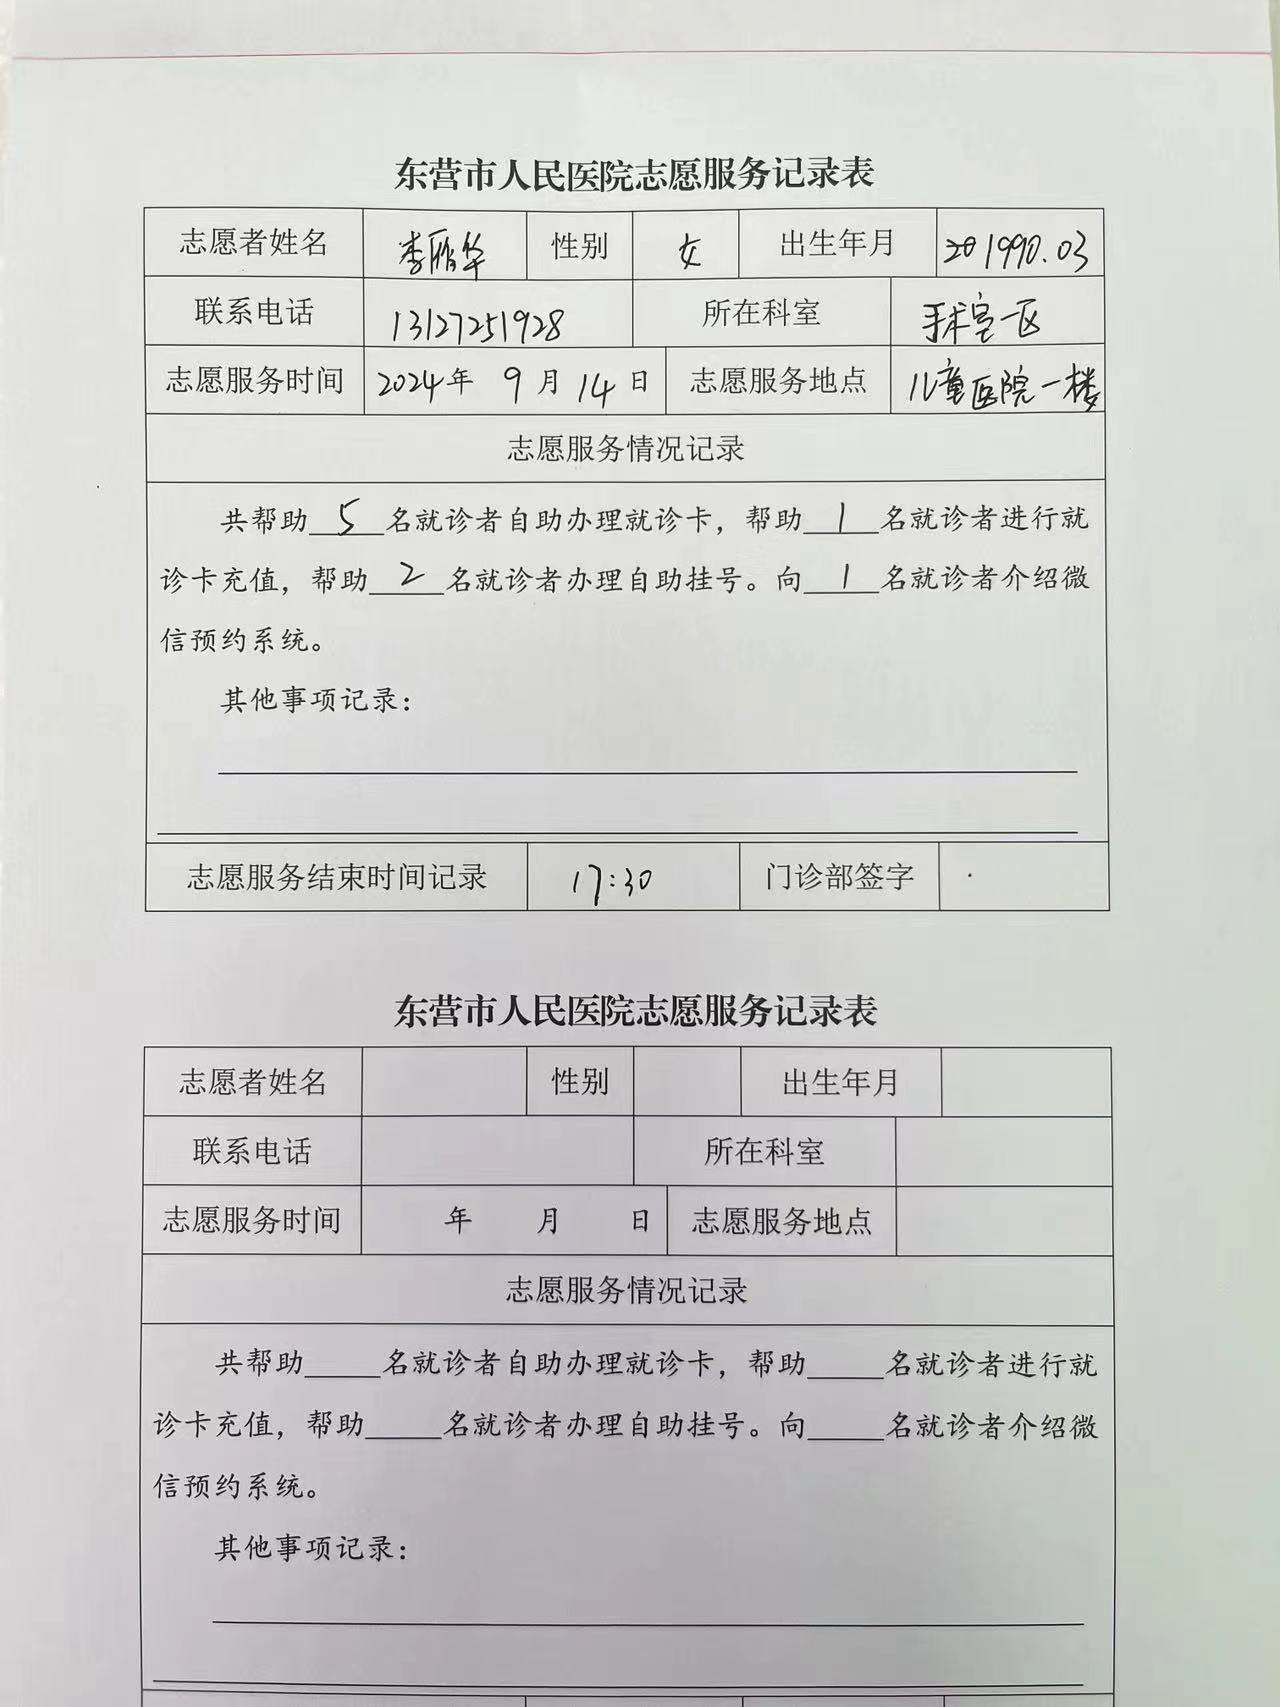 东营市人民医院志愿服务记录表
志愿者姓名 李雁华 性别 女 出生年月 1990.03
联系电话 13127251928 所在科室 手术室一区
志愿服务时间 2024年 9月 14日 志愿服务地点 儿童医院一楼
志愿服务情况记录
共帮助 5 名就诊者自助办理就诊卡，帮助 1 名就诊者进行就
诊卡充值，帮助 2 名就诊者办理自助挂号。向 1 名就诊者介绍微
信预约系统。
其他事项记录：
志愿服务结束时间记录 17:30 门诊部签字
东营市人民医院志愿服务记录表
志愿者姓名 性别 出生年月
联系电话 所在科室
志愿服务时间 年 月 日 志愿服务地点
志愿服务情况记录
共帮助_____名就诊者自助办理就诊卡，帮助_____名就诊者进行就
诊卡充值，帮助_____名就诊者办理自助挂号。向_____名就诊者介绍微
信预约系统。
其他事项记录：